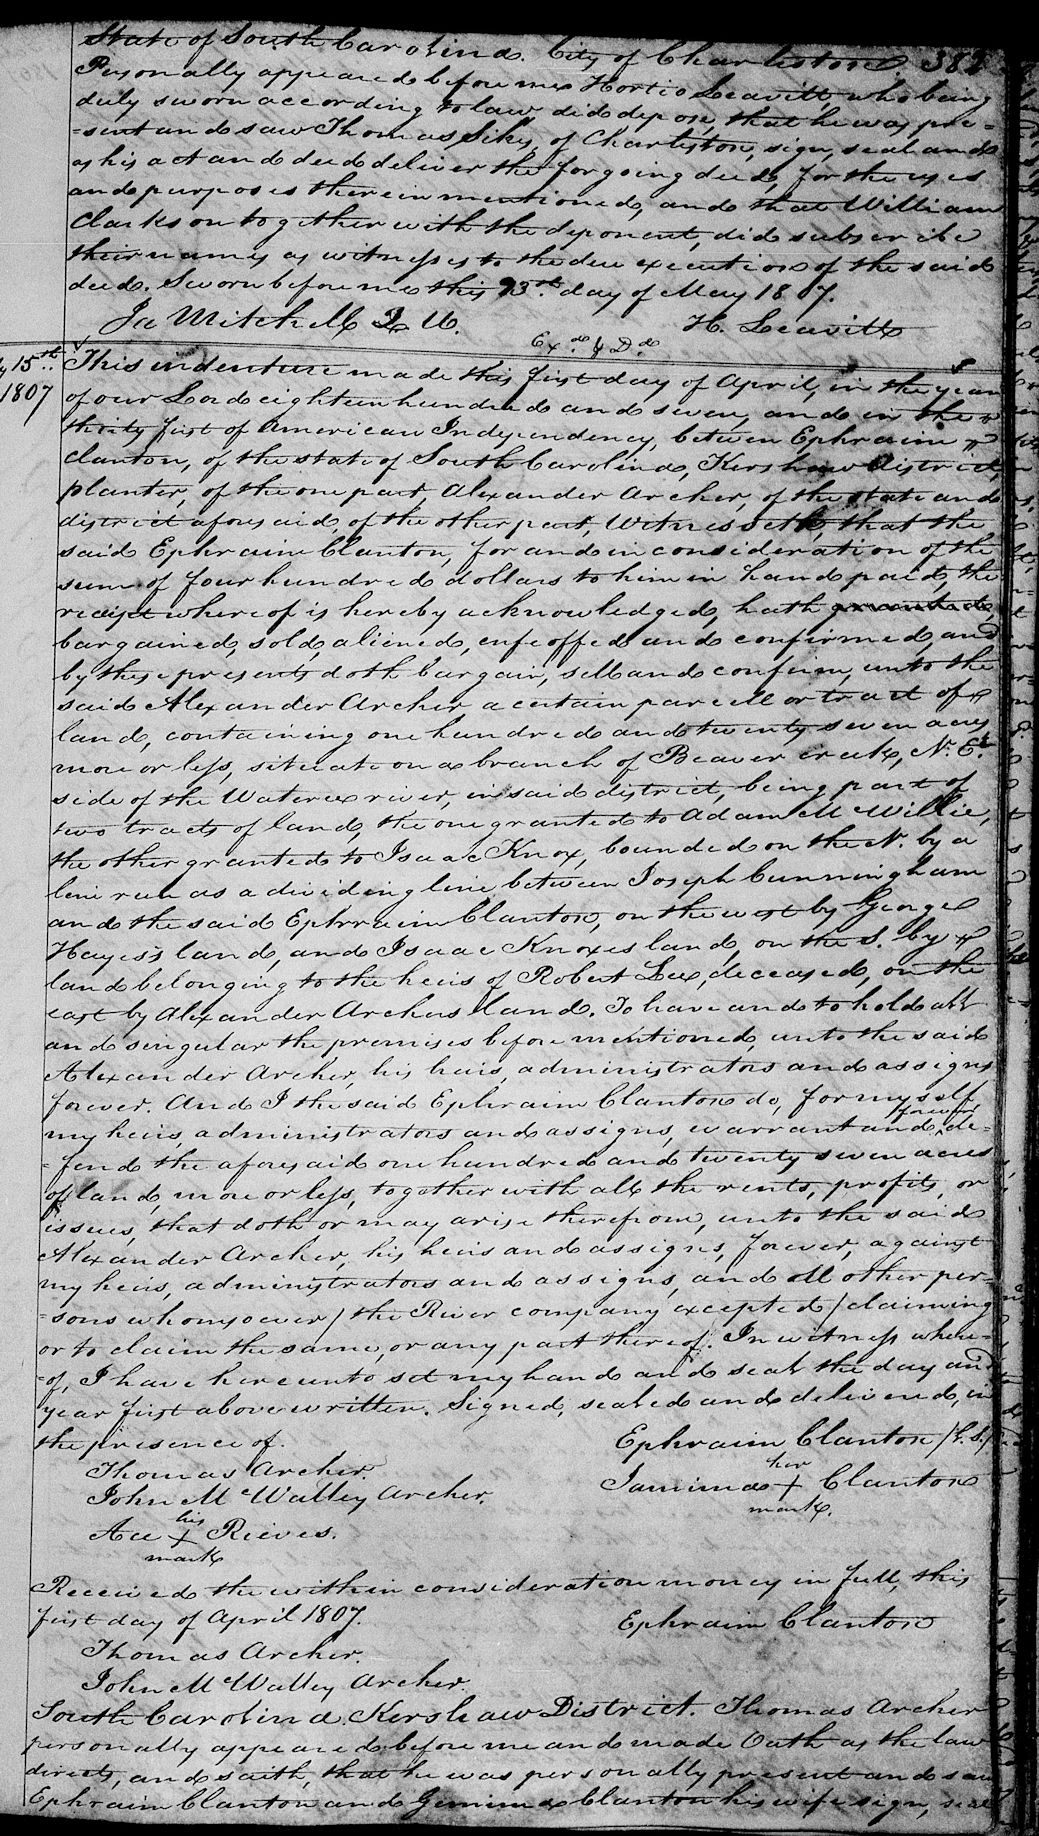 State of South Carolina. City of Charleston. 382
Personally appeared before me Hortio Leavitt who being
duly sworn according to law, did depose, that he was pre=
=sent and saw Thomas Sikes, of Charleston, sign, seal and
as his act and deed deliver the forgoing deed, for the uses
and purposes therein mentioned, and that William
Clarkson together with the deponent, did subscribe
their names as witnesses to the due execution of the said
deed. Sworn before me this 23rd day of May 1807.
Ja Mitchell Q. U. H. Leavitt
Exd. & Dd.
15th
1807
This indenture made this first day of April, in the year
of our Lord eighteen hundred and seven, and in the
thirty first of American Independency, between Ephraim
Clanton, of the state of South Carolina, Kershaw district,
planter, of the one part, Alexander Archer, of the state and
district aforesaid, of the other part, Witnesseth, that the
said Ephraim Clanton, for and in consideration of the
sum of four hundred dollars to him in hand paid, the
receipt whereof is hereby acknowledged, hath granted
bargained, sold, aliened, enfeoffed and confirmed, and
by these presents doth bargain, sell and confirm, unto the
said Alexander Archer, a certain parcell or tract of
land, containing one hundred and twenty seven acres,
more or less, situate on a branch of Beaver creek, N. Et.
side of the Wateree river, in said district, being part of
two tracts of land, the one granted to Adam McWillie,
the other granted to Isaac Knox, bounded on the N. by a
line run as a dividing line between Joseph Cunningham
and the said Ephraim Clanton, on the west by George
Hayes's land, and Isaac Knoxes land, on the S. by
land belonging to the heirs of Robert Lee, deceased, on the
east by Alexander Archers land. To have and to hold all
and singular the premises before mentioned, unto the said
Alexander Archer, his heirs, administrators and assigns
forever. And I the said Ephraim Clanton do, for myself,
my heirs, administrators and assigns, warrant and forever de=
=fend the aforesaid one hundred and twenty seven acres
of land, more or less, together with all the rents, profits, or
issues, that doth or may arise therefrom, unto the said
Alexander Archer, his heirs and assigns, forever, against
my heirs, administrators and assigns, and all other per=
=sons whomsoever / the River company excepted / claiming
or to claim the same, or any part thereof. In witness where=
=of, I have hereunto set my hand and seal the day and
year first above written. Signed, sealed and delivered, in
the presence of.
Ephraim Clanton /L.S./
Thomas Archer.
Jamima her + mark. Clanton
John McWalley Archer.
Ace his + mark Rieves.
Received the within consideration money in full, this
first day of April 1807. Ephraim Clanton
Thomas Archer.
John McWalley Archer.
South Carolina. Kershaw District. Thomas Archer
personally appeared before me and made Oath as the law
directs, and saith, that he was personally present and saw
Ephraim Clanton and Gemima Clanton his wife sign, seal